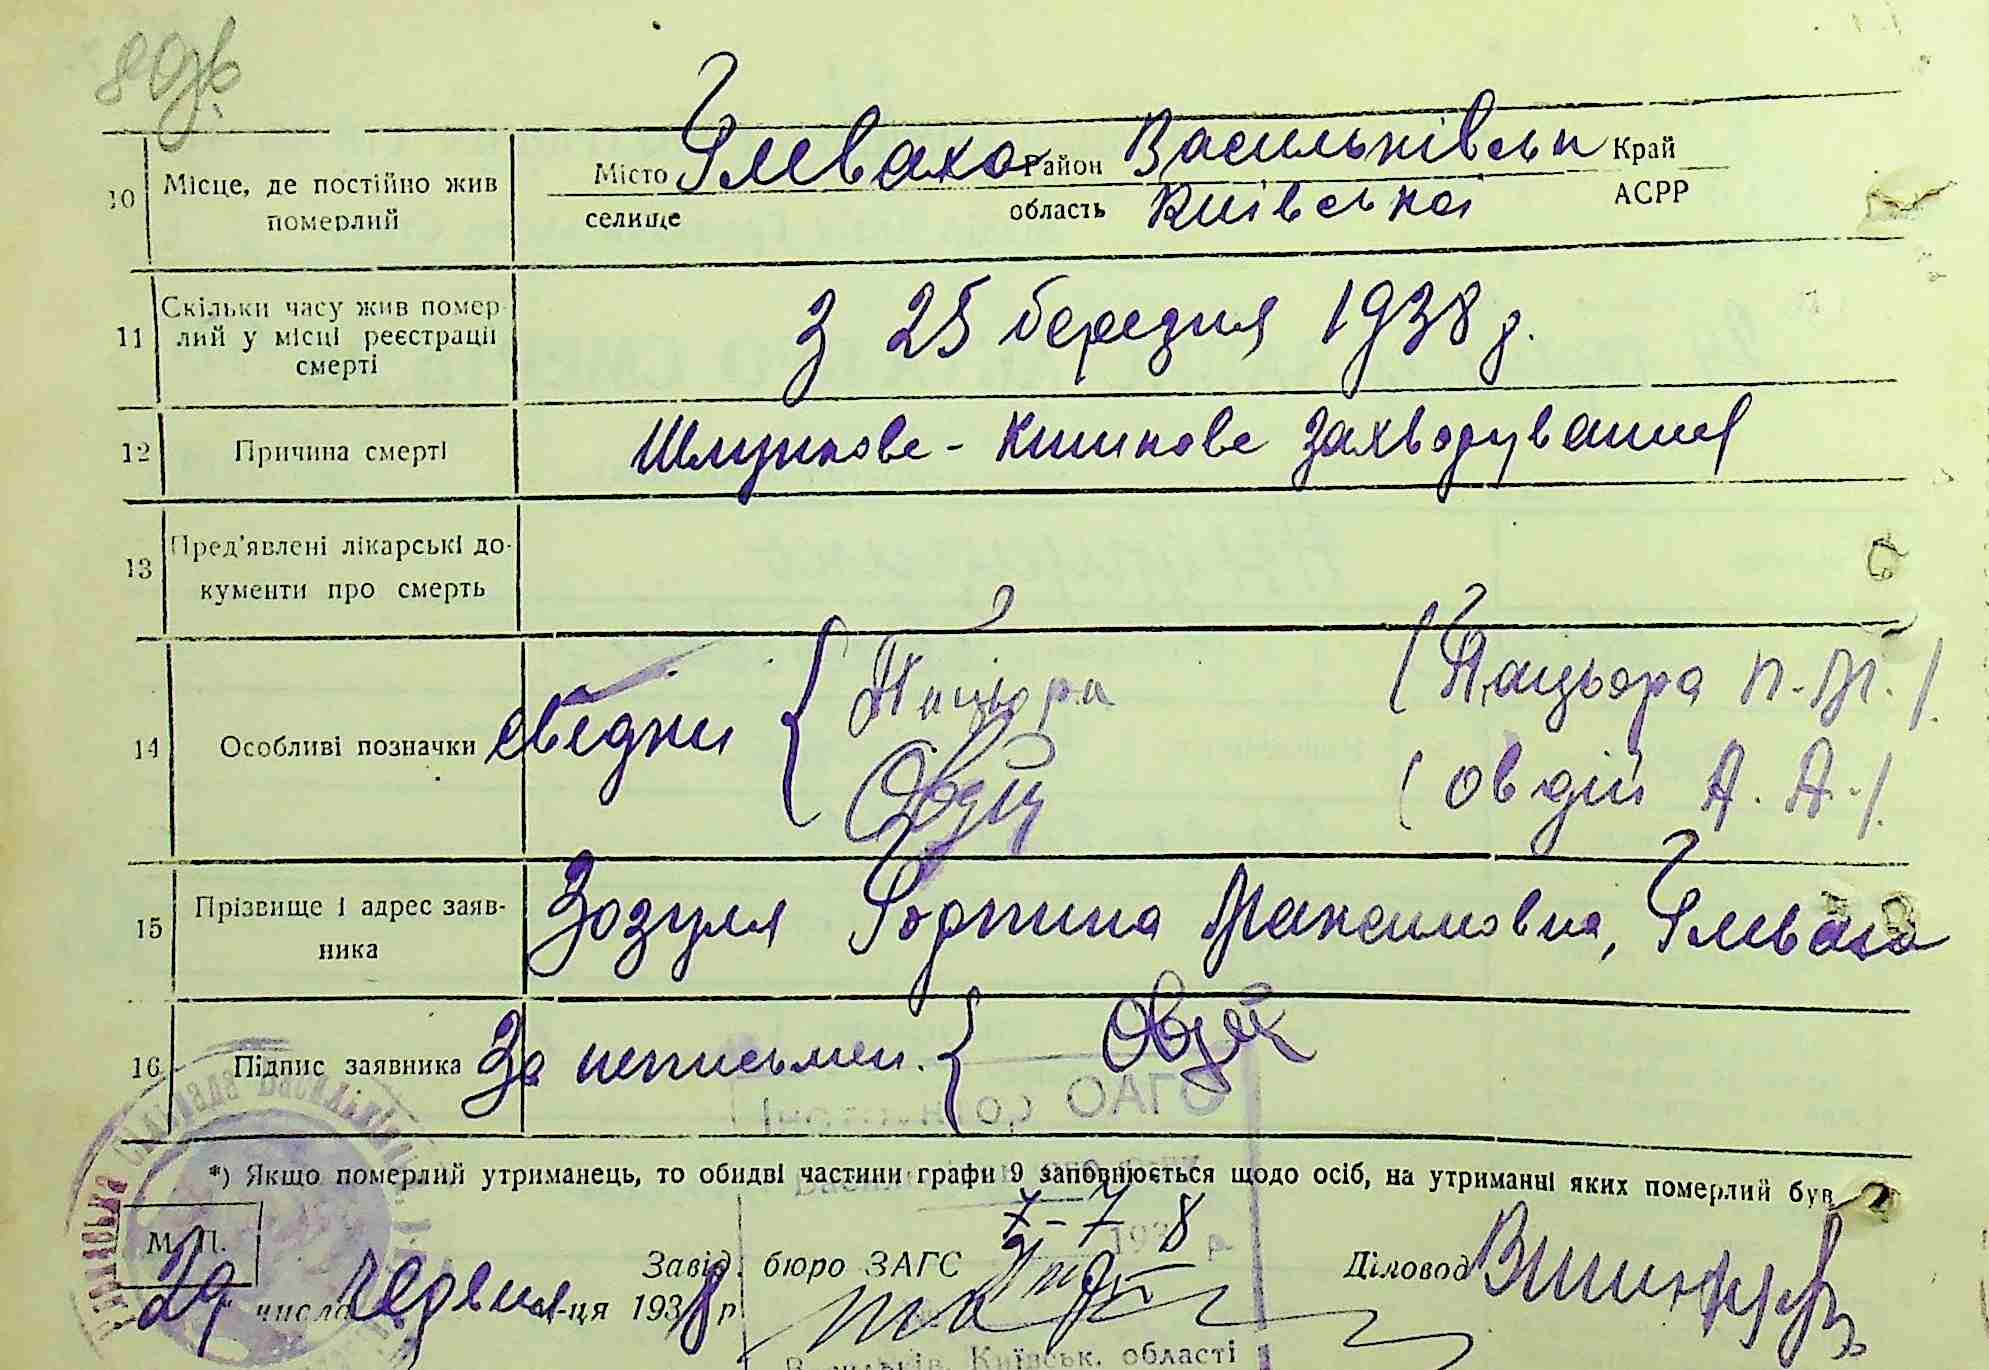 80зв
10 Місце, де постійно жив померлий
Місто Глеваха Район Васильківськ Край
селище область Київська АСРР
11 Скільки часу жив помер-
лий у місці реєстрації
смерті
З 25 березня 1938 р.
12 Причина смерті Шлункове-кишкове захворування
13 Пред'явлені лікарські до-
кументи про смерть
14 Особливі позначки свідки { Пацьора (Пацьора П.М.)
Овдій (Овдій А.А.)
15 Прізвище і адрес заяв-
ника
Зозуля Горпина Максимовна, Глеваха
16 Підпис заявника За неписьмен. { Овдій
*) Якщо померлий утриманець, то обидві частини графи 9 заповнюється щодо осіб, на утриманні яких померлий був
М. П.
Завід. бюро ЗАГС Діловод
29 числа червня м-ця 1938 р
Васильків, Київськ. області